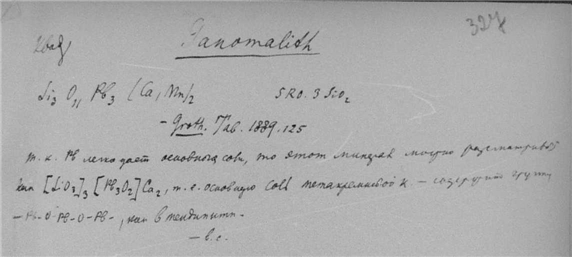 327
Ganomalith
Si3 O11 Pb3 (Ca, Mn)2 5RO. 3SiO2
- Groth. Tab. 1889. 125
т. к. Pb легко дает основные соли, то этот минерал можно рассматривать
как [SiO3]3 [Pb3O2] Ca2, т. е. основную соль метакремневой к. — содержит групп
-Pb-O-Pb-O-Pb-, как в мендипите.